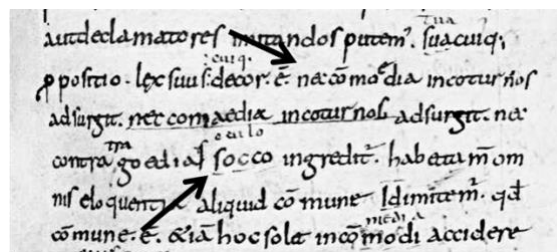 tua
aut declamatores imitandos putem̄. sua cuiq;
cuiq.
ꝓpositio · lex suus decor · ē · nec cōmoedia incoturnos
adsurgit. nec comaedia incoturnos adsurgit. nec
tra oculo
contra goedias socco ingredit̄. habetam̄ om
nis eloquentia aliquid cōmune Idimitem̄. qd
cōmune · ē · &iā hoc solet incōmodi accidere